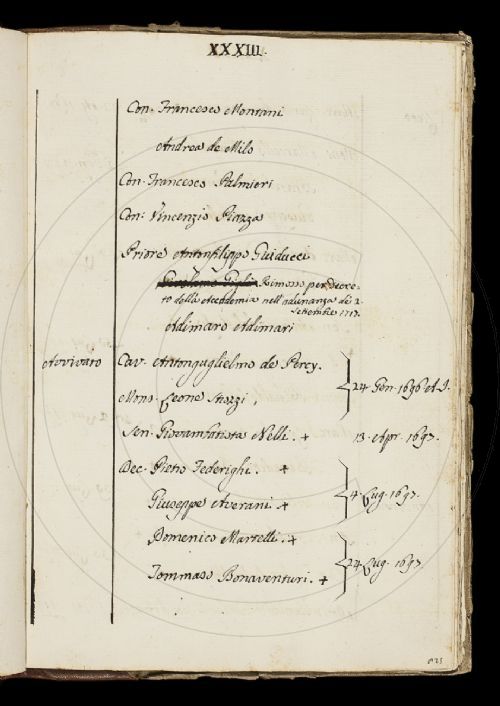 XXXIII.
Con. Francesco Montani
Andrea de Milo
Con. Francesco Palmieri
Con. Vincenzio Piazza
Priore Antonfilippo Guiducci
Girolamo Gigli Rimosso per decre-
to della Accademia nell'adunanza de 2
Settembre 1717.
Adimaro Adimari
Avvivato Cav. Antonguglielmo de Percy.
24 Gen. 1696 A.I.
Mons. Leone Strozzi,
Sen. Giovambatista Nelli. + 13. Apr. 1697.
Dec. Pietro Federighi. +
4. Lug. 1697.
Giuseppe Averani. +
Domenico Martelli. +
24. Lug. 1697.
Tommaso Bonaventuri. +